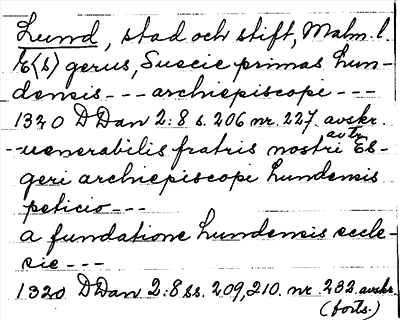 Lund, stad och stift, Malm. l.
E(s)gerus, Suecie primas Lun-
densis --- archiepiscopi ---
1320 DDan 2:8 s. 206 nr. 227. avskr.
-- uenerabilis fratris nostri Es-
avtr.
geri archiepiscopi Lundensis
peticio ---
a fundatione Lundensis eccle-
sie ---
1320 DDan 2:8 ss. 209, 210. nr. 232. avskr.
(forts.)